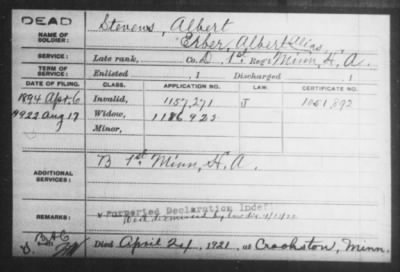 DEAD
NAME OF SOLDIER: Stevens, Albert
Erber, Albert Alias
SERVICE: Late rank, Co. D, 1st Reg't Minn. H. A.
TERM OF SERVICE: Enlisted , 1 Discharged , 1
DATE OF FILING. CLASS. APPLICATION NO. LAW. CERTIFICATE NO.
1894 Apr. 6 Invalid, 1157,271 J 1051,892
1922 Aug 17 Widow, 1186922
Minor,
ADDITIONAL SERVICES: B 1st Minn. H. A.
REMARKS: Purported Declaration Indef
Died April 24, 1921, at Crookston, Minn.